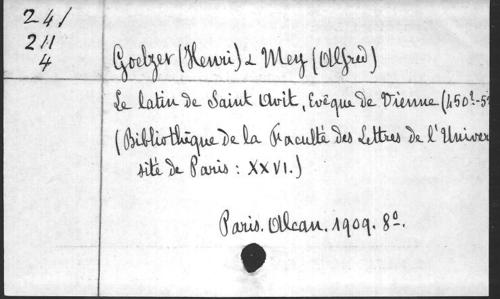 241
211
4
Goelzer (Henri) & Mey (Alfred)
Le latin de Saint Avit, Evêque de Vienne (450?-5
(Bibliothèque de la Faculté des Lettres de l'Univer
sité de Paris : XXVI.)
Paris. Alcan. 1909. 8º.